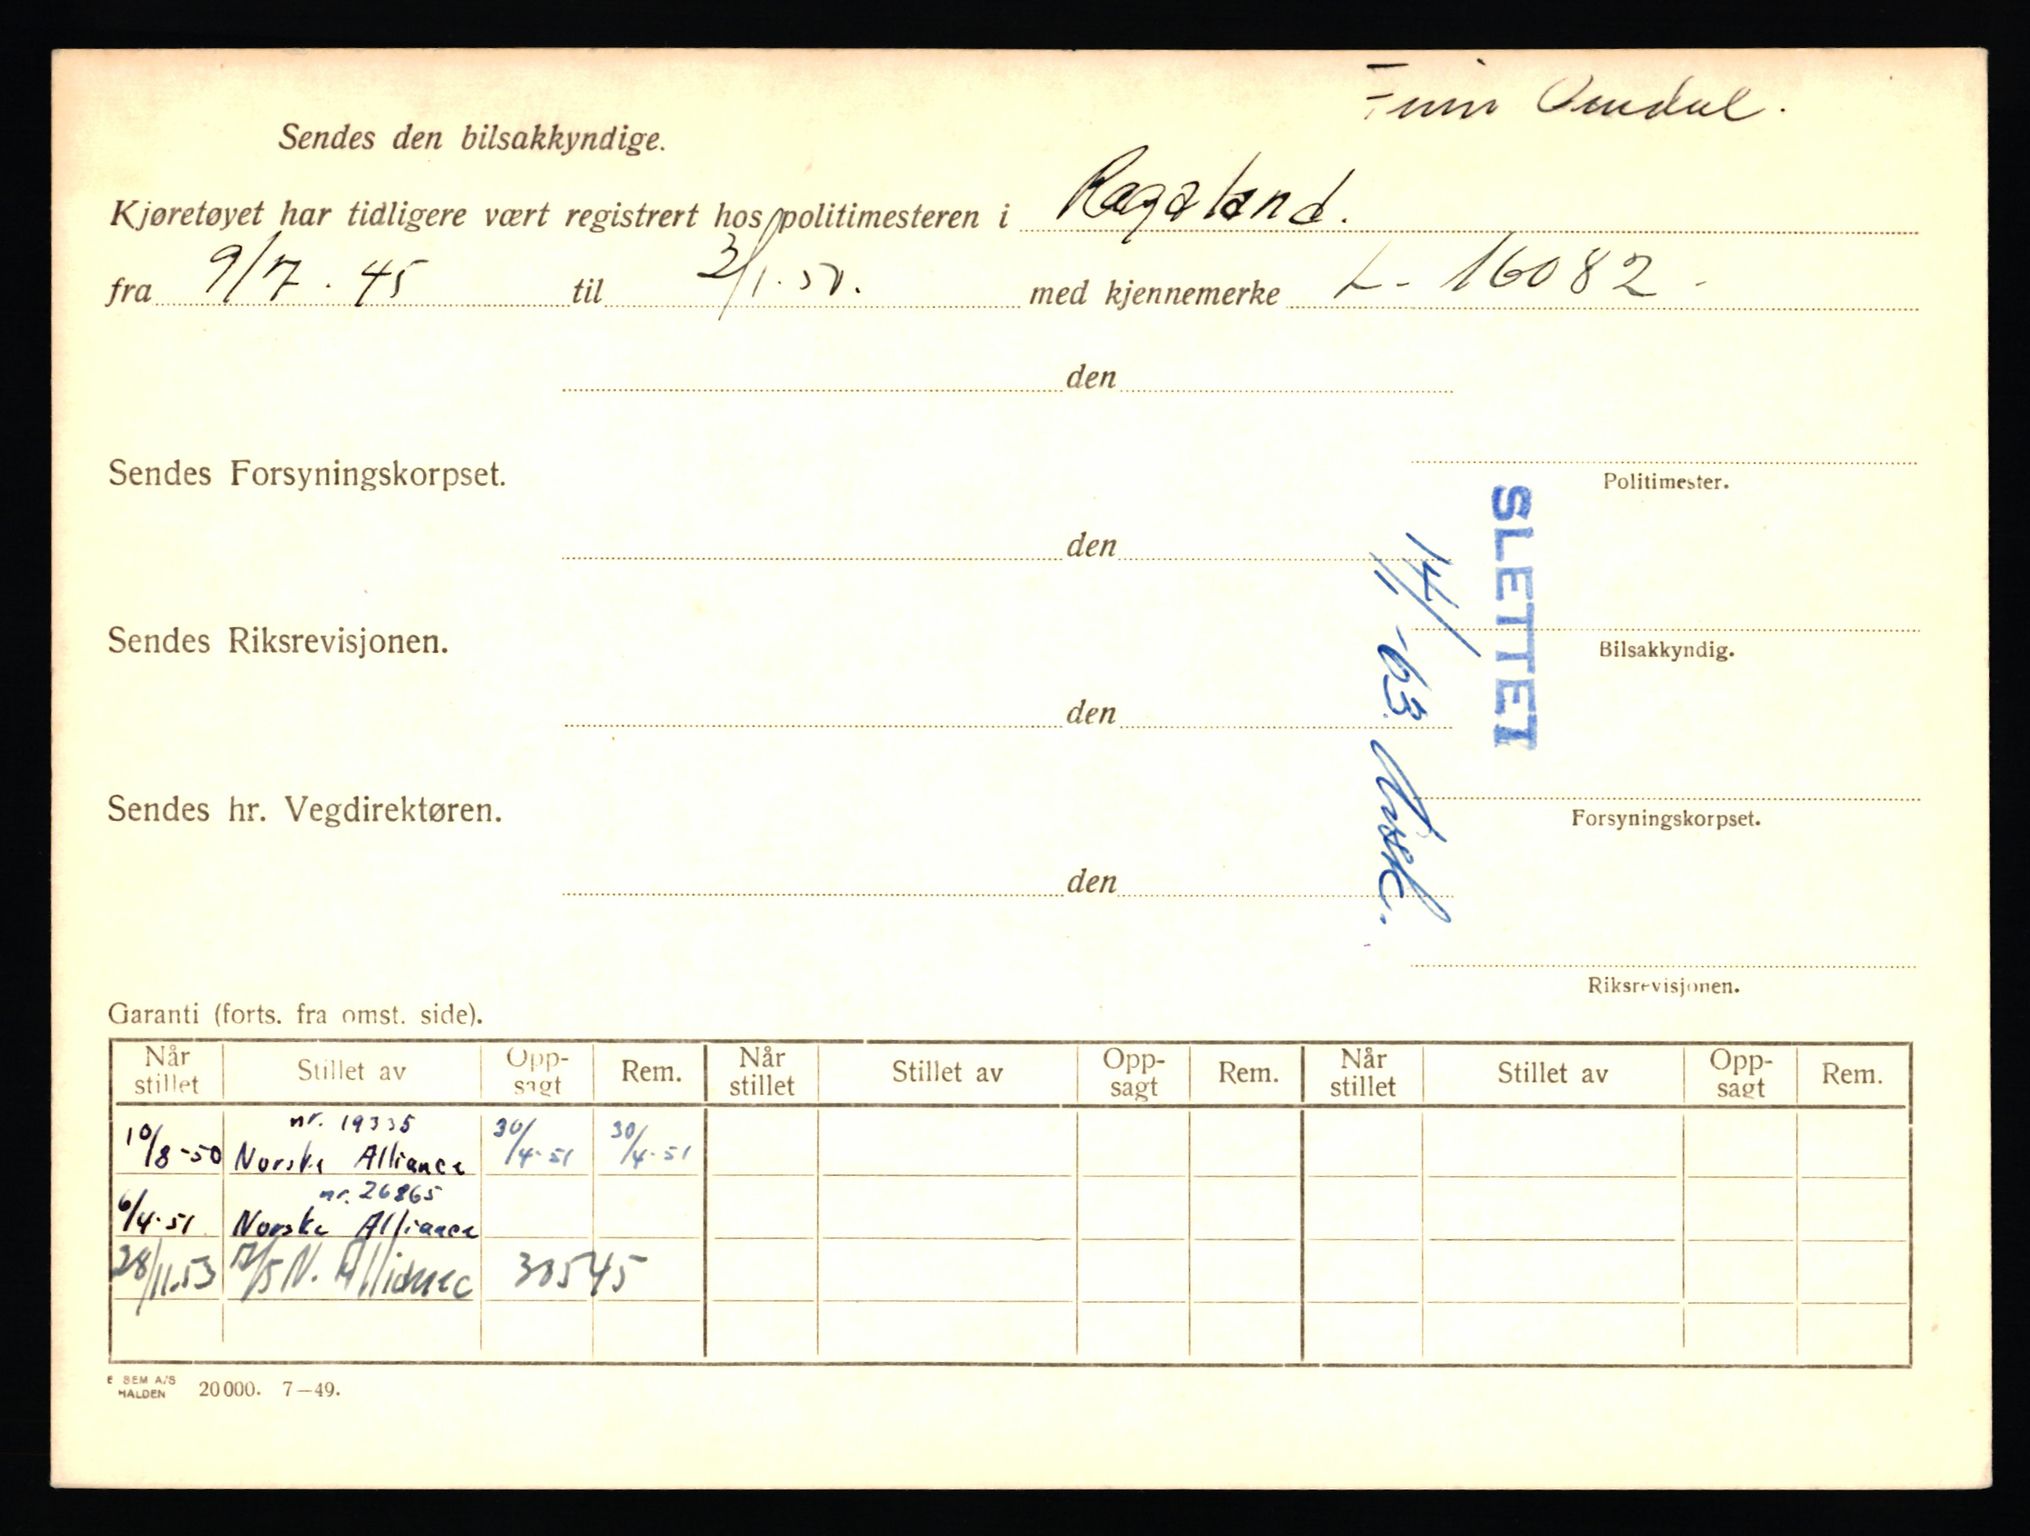 Finn Omdal.
Sendes den bilsakkyndige.
Kjøretøyet har tidligere vært registrert hos politimesteren i Rogaland.
fra 9/7. 45 til 3/1. 50. med kjennemerke L- 16082.
den
Sendes Forsyningskorpset.
Politimester.
den
SLETTET
14/1 -63
Sendes Riksrevisjonen.
Bilsakkyndig.
den
Sendes hr. Vegdirektøren.
Forsyningskorpset.
den
Riksrevisjonen.
Garanti (forts. fra omst. side).
Når stillet Stillet av Opp-sagt Rem. Når stillet Stillet av Opp-sagt Rem. Når stillet Stillet av Opp-sagt Rem.
nr. 19335
10/8-50 Norske Alliance 30/4-51 30/4-51
nr. 26865
6/4-51 Norske Alliance
28/11.53 A/S N. Alliance 30545
E SEM A/S
HALDEN 20000. 7—49.